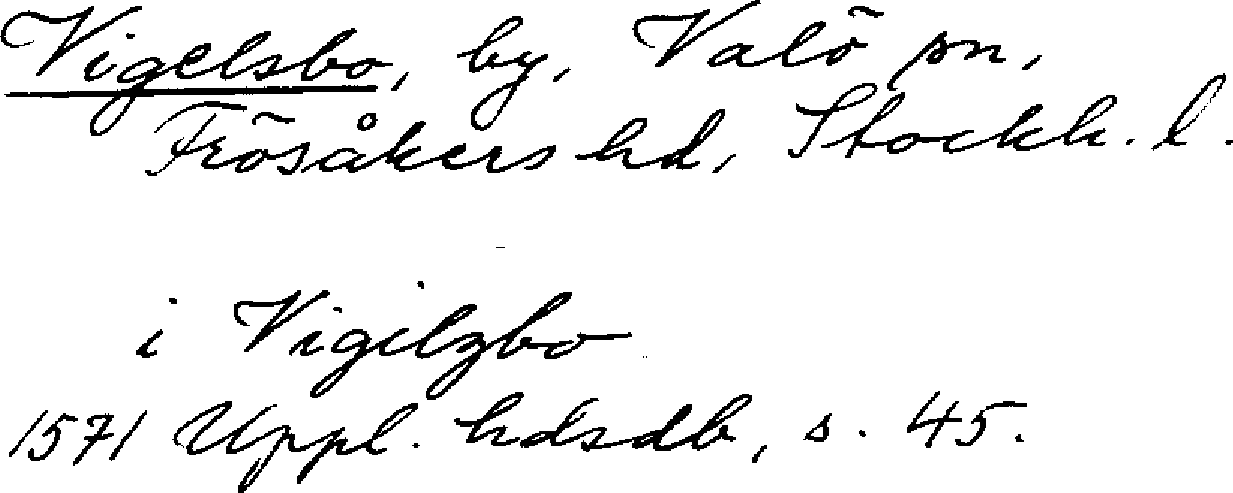 Vigelsbo, by, Valö sn,
Frösåkers hd, Stockh. l.
i Vigilzbo
1571 Uppl. hdsdb, s. 45.